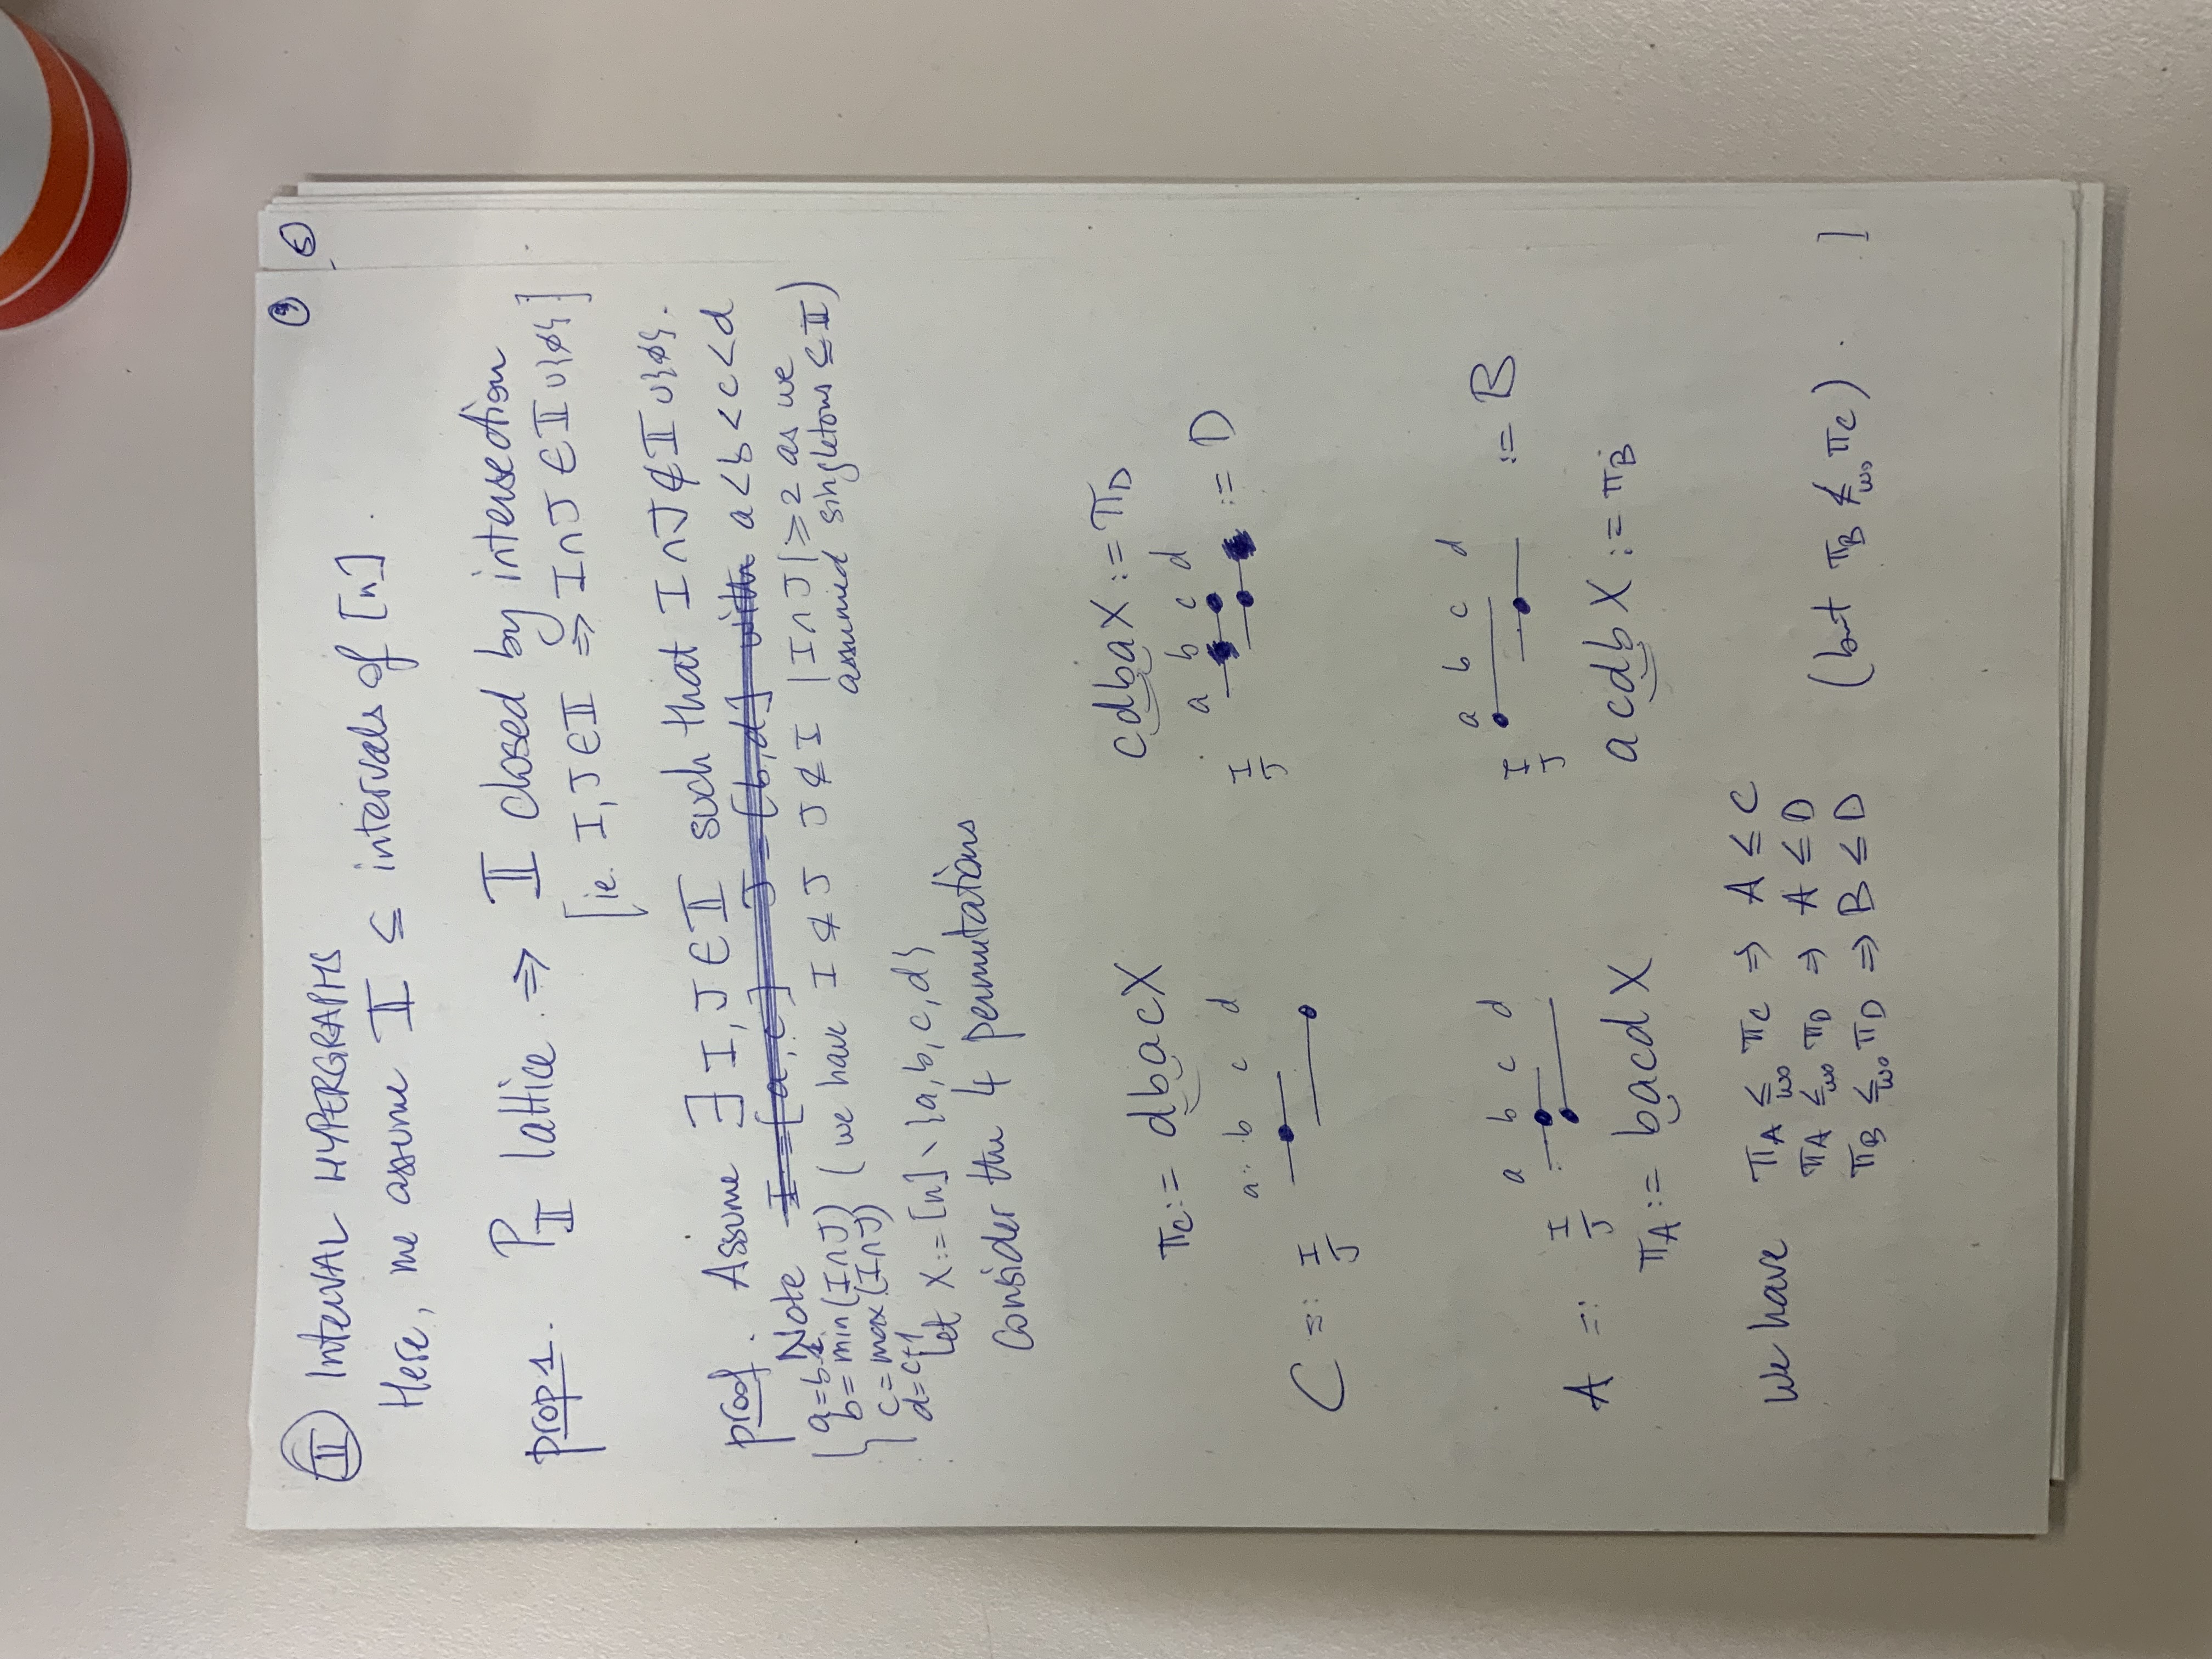 ③ 5
Ⅱ INTERVAL HYPERGRAPHS
Here, we assume 𝕀 ⊆ intervals of [n].
prop1. P_𝕀 lattice ⇒ 𝕀 closed by intersection
[ie. I, J ∈ 𝕀 ⇒ I ∩ J ∈ 𝕀 ∪ {∅}]
proof. Assume ∃ I, J ∈ 𝕀 such that I ∩ J ∉ 𝕀 ∪ {∅}.
Note I = [a, c] J = [b, d] with a < b < c < d
{ a = b-1
b = min (I ∩ J) (we have I ⊄ J J ⊄ I |I ∩ J| ≥ 2 as we
c = max (I ∩ J) assumed singletons ⊆ 𝕀)
d = c+1
Let X := [n] \ {a, b, c, d}
Consider the 4 permutations
π_C := dbacX cdbaX := π_D
a b c d a b c d
C =: I J I J := D
a b c d a b c d
A =: I J I J := B
π_A := bacdX acdbX := π_B
We have π_A ≤_wo π_C ⇒ A ≤ C
π_A ≤_wo π_D ⇒ A ≤ D
π_B ≤_wo π_D ⇒ B ≤ D (but π_B ≰_wo π_C). ]